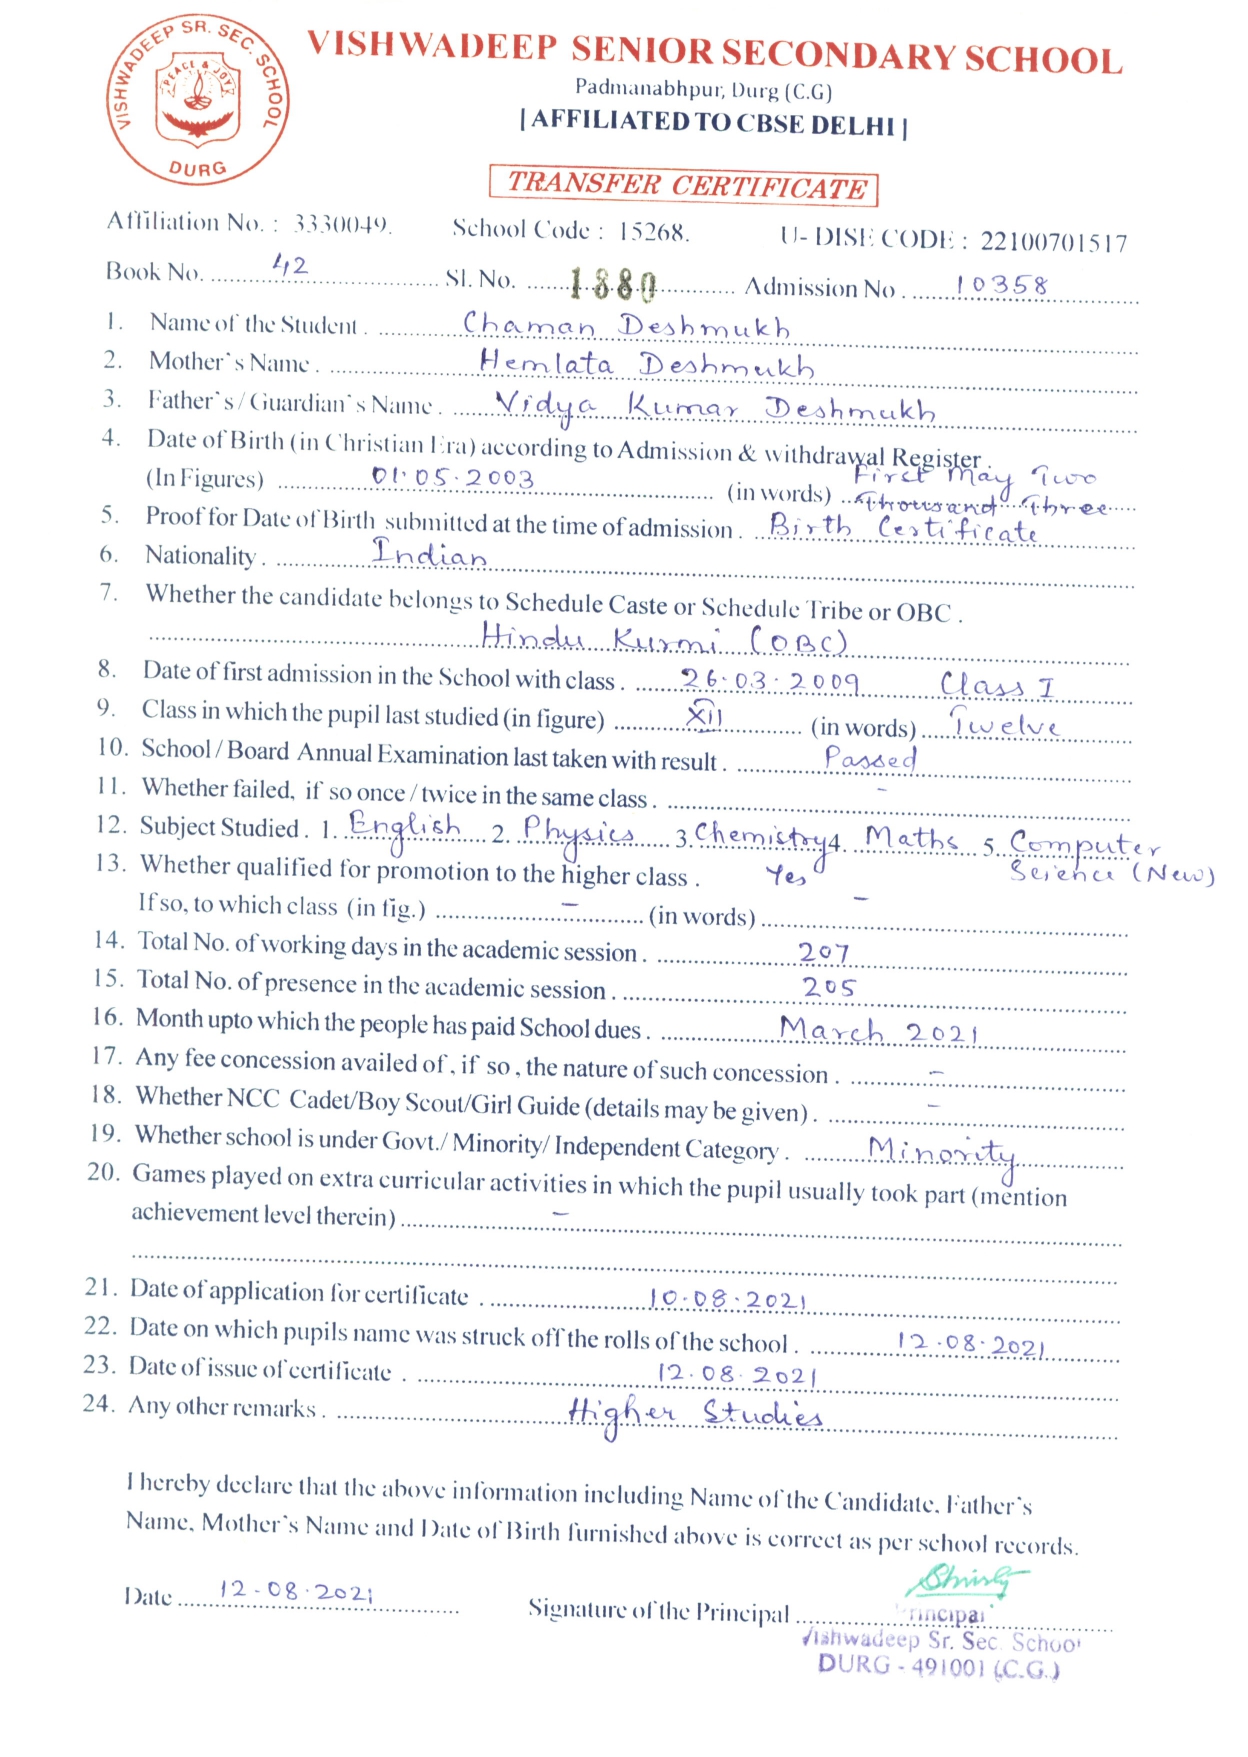 VISHWADEEP SR. SEC. SCHOOL
PEACE & JOY
DURG
VISHWADEEP SENIOR SECONDARY SCHOOL
Padmanabhpur, Durg (C.G)
| AFFILIATED TO CBSE DELHI |
TRANSFER CERTIFICATE
Affiliation No. : 3330049. School Code : 15268. U- DISE CODE : 22100701517
Book No. 42 Sl. No. 1880 Admission No . 10358
1. Name of the Student . Chaman Deshmukh
2. Mother`s Name . Hemlata Deshmukh
3. Father`s / Guardian`s Name . Vidya Kumar Deshmukh
4. Date of Birth (in Christian Era) according to Admission & withdrawal Register .
(In Figures) 01.05.2003 (in words) First May Two Thousand Three
5. Proof for Date of Birth submitted at the time of admission . Birth Certificate
6. Nationality . Indian
7. Whether the candidate belongs to Schedule Caste or Schedule Tribe or OBC .
Hindu Kurmi (OBC)
8. Date of first admission in the School with class . 26.03.2009 Class I
9. Class in which the pupil last studied (in figure) XII (in words) Twelve
10. School / Board Annual Examination last taken with result . Passed
11. Whether failed, if so once / twice in the same class . -
12. Subject Studied . 1. English 2. Physics 3. Chemistry 4. Maths 5. Computer Science (New)
13. Whether qualified for promotion to the higher class . Yes
If so, to which class (in fig.) - (in words) -
14. Total No. of working days in the academic session . 207
15. Total No. of presence in the academic session . 205
16. Month upto which the people has paid School dues . March 2021
17. Any fee concession availed of , if so , the nature of such concession . -
18. Whether NCC Cadet/Boy Scout/Girl Guide (details may be given) . -
19. Whether school is under Govt./ Minority/ Independent Category . Minority
20. Games played on extra curricular activities in which the pupil usually took part (mention
achievement level therein) -
21. Date of application for certificate . 10.08.2021
22. Date on which pupils name was struck off the rolls of the school . 12.08.2021
23. Date of issue of certificate . 12.08.2021
24. Any other remarks . Higher Studies
I hereby declare that the above information including Name of the Candidate, Father`s
Name, Mother`s Name and Date of Birth furnished above is correct as per school records.
Date 12-08.2021 Signature of the Principal
Principal
Vishwadeep Sr. Sec. School
DURG - 491001 (C.G.)